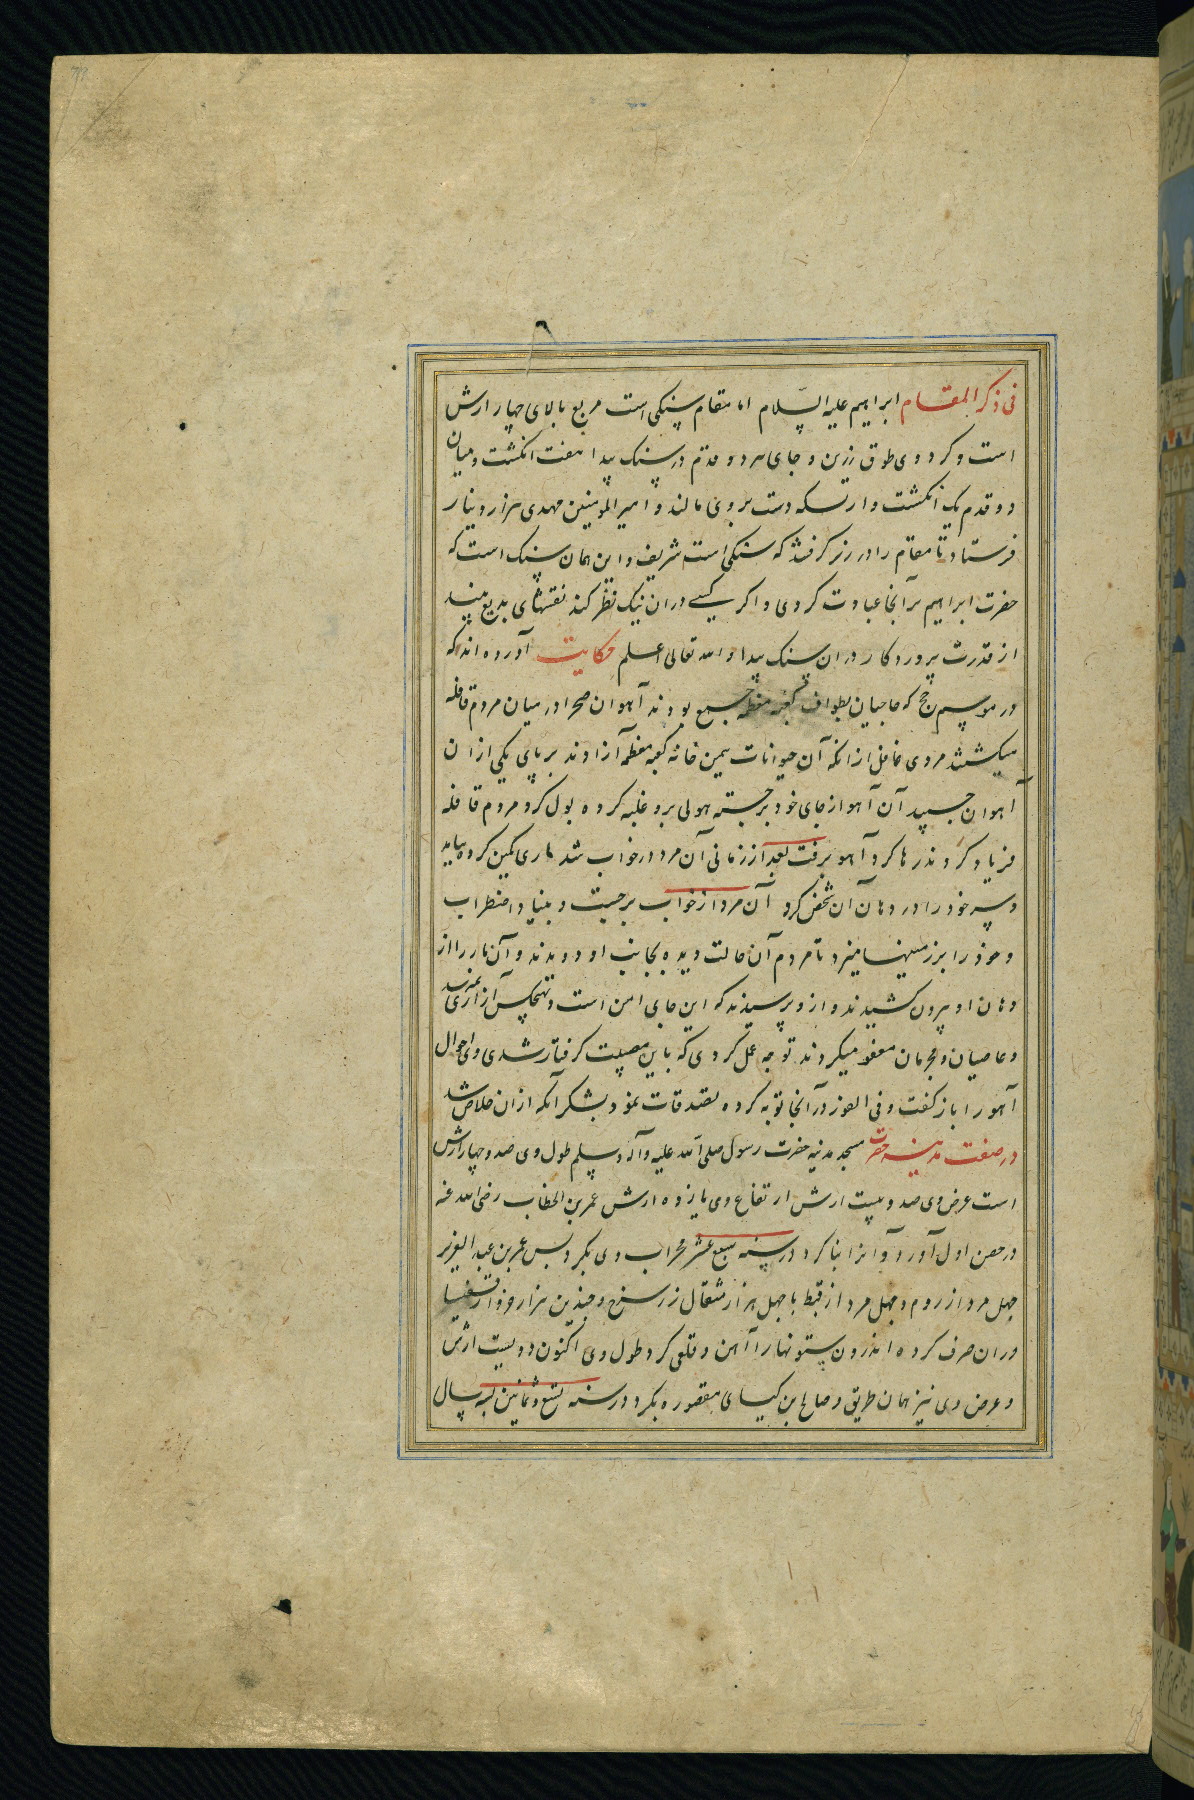 فی ذکر المقام ابراهیم علیه السلام اما مقام سنکی است مربع بالای چهار ارش
است و کرد وی طوق زرین و جای هر دو قدم در سنک پیدا هفت انکشت و میان
دو قدم یک انکشت و از تسکه دست بروی مالند و امیر المومنین مهدی هزار دینار
فرستاد تا مقام را در زر کرفتند که سنکی است شریف و این همان سنک است که
حضرت ابراهیم بر آنجا عبادت کردی و اکر کسی در ان نیک نظر کند نقشهای بدیع بیند
از قدرت پروردکار در ان سنک پیدا و الله تعالی اعلم حکایت آورده اند که
در موسم حج که حاجیان بطواف کعبه معظمه جمع بودند آهوان صحرا در میان مردم قافله
میکشتند مردی غافل از انکه آن حیوانات بیمن خانه کعبه معظمه آزادند بر پای یکی از ان
آهوان چسپید آن آهو از جای خود برجسته هولی برو غلبه کرده بول کرد مردم قافله
فریاد کردند رها کرد آهو برفت بعد از زمانی آن مرد در خواب شد ماری کمین کرده بیاید
و سر خود را در دهان آن شخص کرد آن مرد از خواب برجست و بنیاد اضطراب
و خود را بر زمینها میزد تا مردم آن حالت دیده بجانب او دویدند و آن مار را از
دهان او بیرون کشیدند و ازو پرسیدند که این جای امن است و هیچکس را آزاری نمیرسد
و عاصیان و مجرمان معفو میکردند تو چه عمل کردی که باین مصیبت کرفتار شدی وی احوال
آهو را باز کفت و فی الفور در آنجا توبه کرده تصدقات نمود بشکر آنکه از ان خلاص شد
در صفت مدینه حضرت مسجد مدینه حضرت رسول صلی الله علیه وآله وسلم طول وی صد و چهار ارش
است عرض وی صد و بیست ارش ارتفاع وی یازده ارش عمر بن الخطاب رضی الله عنه
در حصن اول آورد و آنرا بنا کرد در سنه سبع عشر محراب وی بکرد پس عمر بن عبد العزیز
چهل مرد از روم و چهل مرد از قبط با چهل هزار مثقال زر سرخ و چندین هزار
در ان صرف کرده اندرون ستونها را آهن و قلعی کرد طول وی اکنون دویست ارش
و عرض وی نیز همان طریق و صالح ابن کیسای مقصوره بکرد در سنه تسع و ثمانین بسه سال